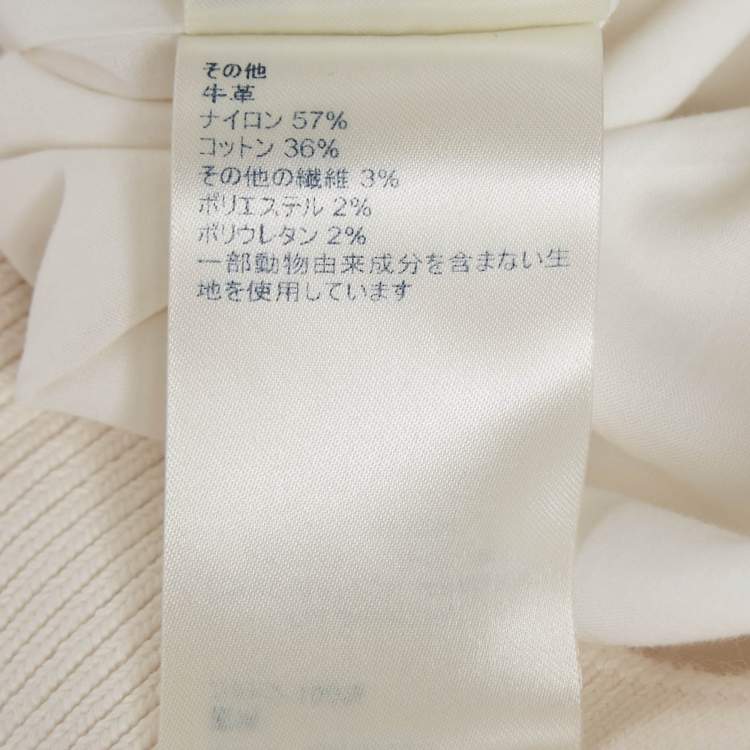 その他
牛革
ナイロン 57%
コットン 36%
その他の繊維 3%
ポリエステル 2%
ポリウレタン 2%
一部動物由来成分を含まない生
地を使用しています